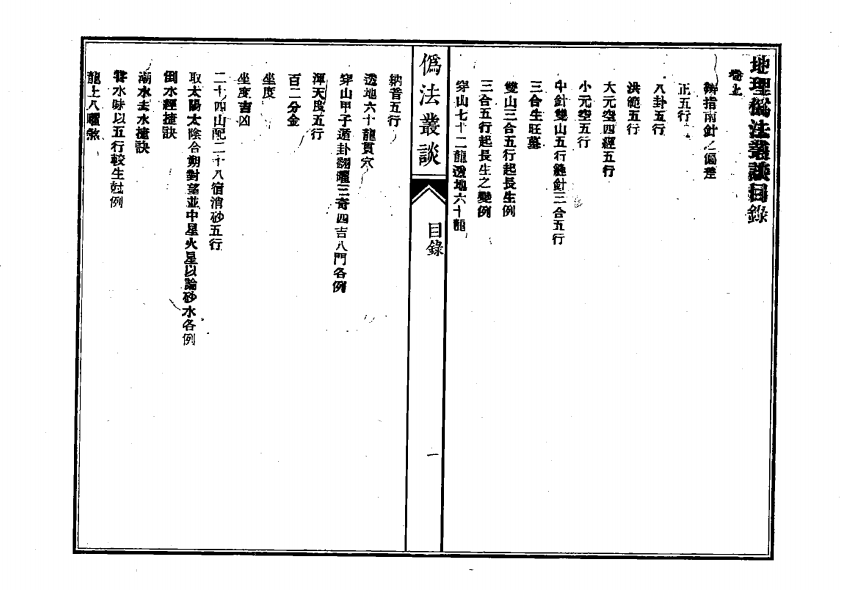 地理偽法叢談目錄
卷上
辨指南針之偏差
正五行
八卦五行
洪範五行
大元空四經五行
小元空五行
中針雙山五行縫針三合五行
三合生旺墓
雙山三合五行起長生例
三合五行起長生之變例
穿山七十二龍透地六十龍
偽法叢談
目錄
一
納音五行
透地六十龍貫穴
穿山甲子遁卦翻曜三奇四吉八門各例
渾天度五行
百二分金
坐度
坐度吉凶
二十四山配二十八宿消砂五行
取太陽太陰合朔對望並中星火星以論砂水各例
倒水經撞訣
潮水去水撞訣
嘗水味以五行較生尅例
龍上八曜煞